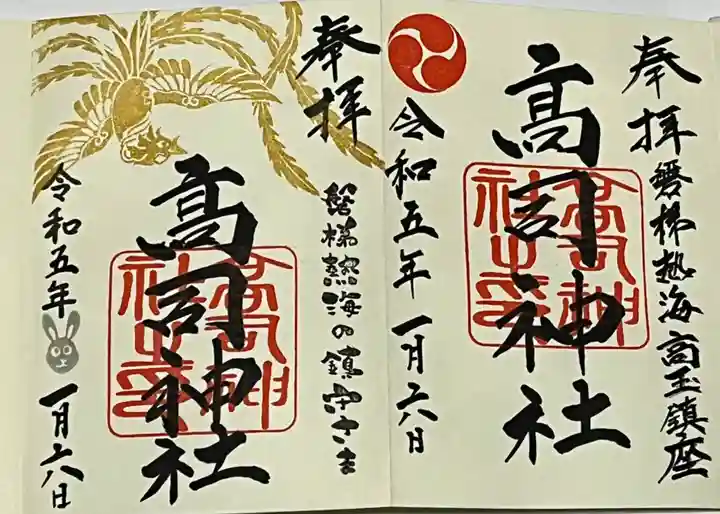 奉拝
磐梯熱海高玉鎮座
高司神社
高司神
社之印
令和五年一月六日
奉拝
磐梯熱海の鎮守さま
高司神社
高司神
社之印
令和五年一月六日